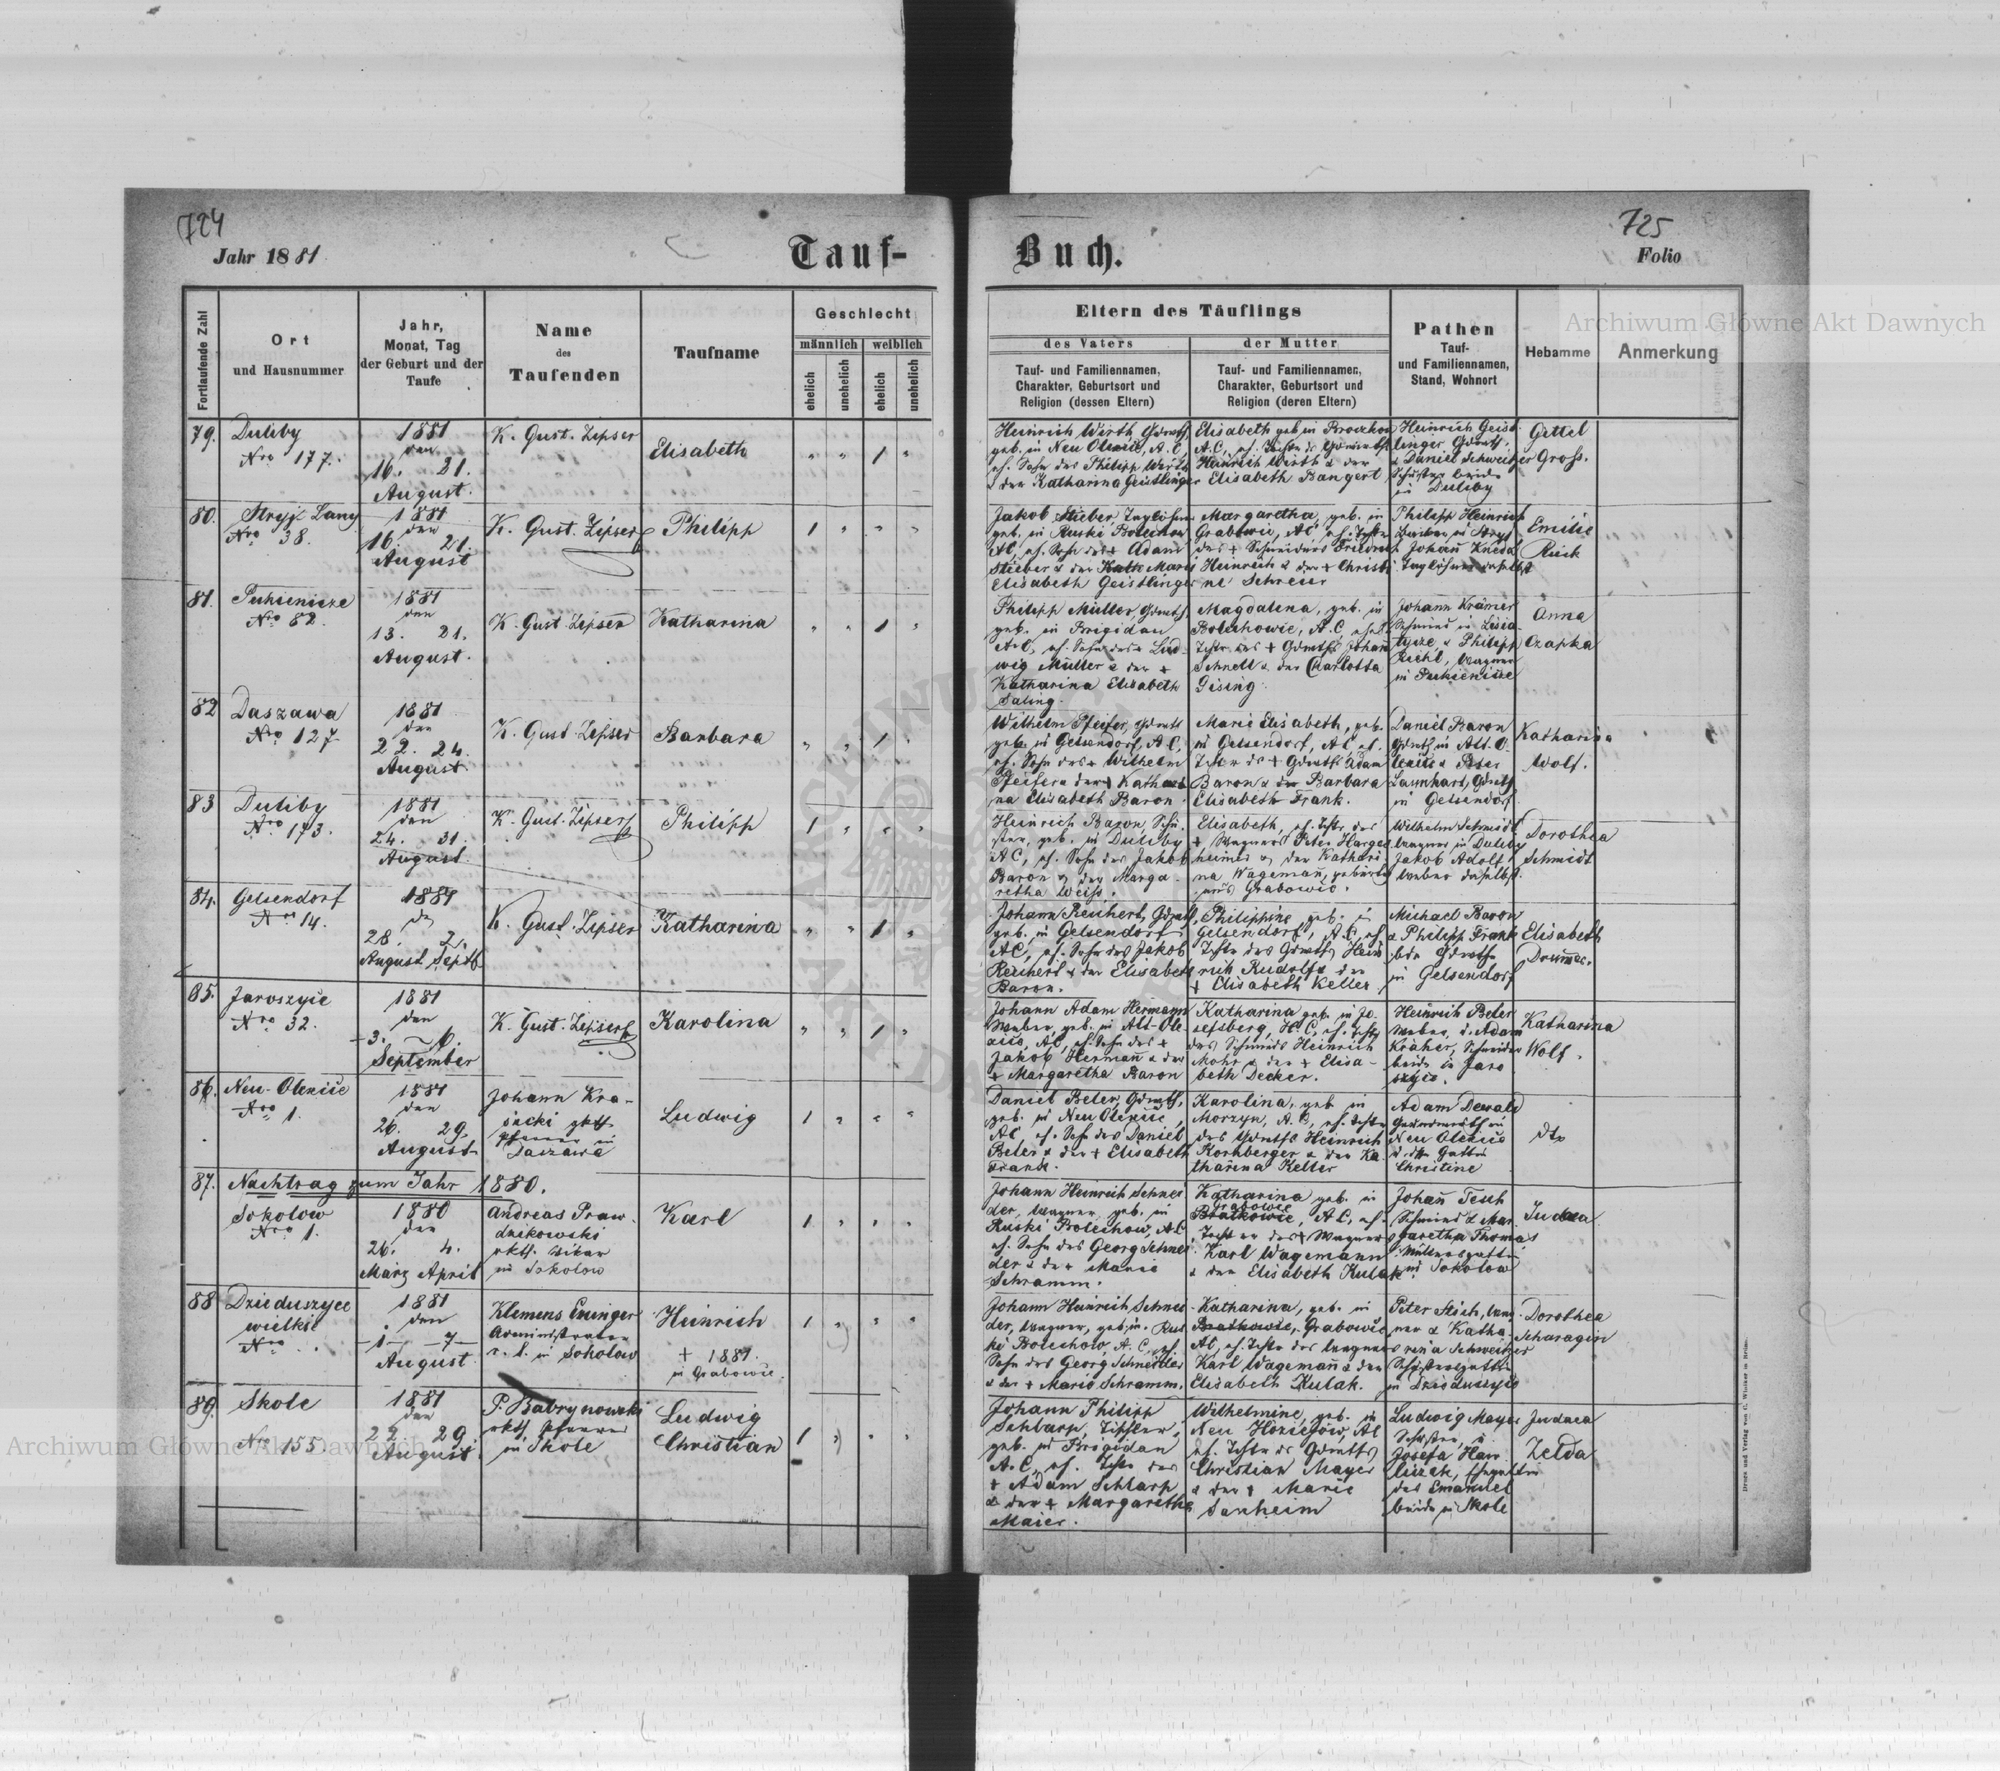 724
725
Jahr 1881
Tauf-
Buch.
Folio
Archiwum Główne Akt Dawnych
Fortlaufende Zahl
Ort
und Hausnummer
Jahr,
Monat, Tag
der Geburt und der
Taufe
Name
des
Taufenden
Taufname
Geschlecht
männlich weiblich
ehelich
unehelich
ehelich
unehelich
Eltern des Täuflings
des Vaters
Tauf- und Familiennamen,
Charakter, Geburtsort und
Religion (dessen Eltern)
der Mutter
Tauf- und Familiennamen,
Charakter, Geburtsort und
Religion (deren Eltern)
Pathen
Tauf-
und Familiennamen,
Stand, Wohnort
Hebamme
Anmerkung
79.
Duliby
Nro 177.
1881
den
16. 21.
August.
K. Gust. Zipser
Elisabeth
" " 1 "
Heinrich Wirth
geb. in Neu Olexice, A.C.,
eh. Sohn des Philipp Wirth
& der Katharina Geistlinger
Elisabeth geb in
Heinrich Wirth & der
Elisabeth Bangert
Heinrich Geist-
linger
& Daniel Schweitzer
Schuster beide
in Duliby
Gittel
Gross.
80.
Stryj Lany
Nro 38.
1881
den
16. 21.
August
K. Gust. Zipser
Philipp
1 " " "
Jakob Stieber, Taglöhner
geb. in Ruski Bolechow
AC, eh. Sohn des + Adam
Stieber & der Marie
Elisabeth Geistlinger
Margaretha, geb. in
Grabowic, AC, eh. Tochter
des + Schneiders Friedrich
Heinrich & der + Christi-
ne Schreier
Philipp Heinrich
in Stryj
Johann
Taglöhner daselbst
Emilie
Ruck
81.
Nro 82.
1881
den
13. 21.
August.
K. Gust. Zipser
Katharina
" " 1 "
Philipp Müller,
geb. in Brigidau
AC, eh. Sohn des + Lud-
wig Müller & der +
Katharina Elisabeth
Saling.
Magdalena, geb. in
Bolechowic, A.C, ehel.
Johann
Schnell & der Charlotta
Gising.
Johann Krämer
Schmied in Lisia-
tycze, & Philipp
Wagner
in
Anna
Czapka
82
Daszawa
Nro 127
1881
den
22. 24.
August
K. Gust. Zipser
Barbara
" " 1 "
Wilhelm Pfeifer,
geb. in Gelsendorf, A.C,
eh. Sohn des + Wilhelm
Pfeifer & der + Kathari-
na Elisabeth Baron.
Marie Elisabeth, geb.
in Gelsendorf, AC, eh.
Adam
Baron & der Barbara
Elisabeth Frank.
Daniel Baron
in Alt-O-
lexice & Peter
Launhart,
in Gelsendorf.
Katharina
Wolf.
83
Duliby
Nro 173.
1881
den
24. 31.
August
K. Gust. Zipser
Philipp
1 " " "
Heinrich Baron, Schu-
ster, geb. in Duliby
AC, eh. Sohn des Jakob
Baron & der Marga-
retha Weiss.
Elisabeth, eh. Tchtr. des
+ Wagners Peter Harges-
heimer & der Kathari-
na Wagemann, gebürtig
aus Grabowic.
Wilhelm Schmidt
Wagner in Duliby
Jakob Adolf
Weber daselbst.
Dorothea
Schmidt
84.
Gelsendorf
Nro 14.
1881
28. 2.
August Septb
K. Gust. Zipser
Katharina
" " 1 "
Johann Reichert,
geb. in Gelsendorf
AC, eh. Sohn des Jakob
Reichert & der Elisabeth
Baron.
Philippine, geb. in
Gelsendorf, A.C, eh.
Hein-
rich Rudolf & der
+ Elisabeth Keller
Michael Baron
& Philipp Frank
in Gelsendorf
Elisabeth
85.
Jaroszyce
Nro 32.
1881
den
3. 6.
September
K. Gust. Zipser
Karolina
" " 1 "
Johann Adam Hermann
Weber, geb. in Alt-Ole-
xice, AC, eh. Sohn des +
Jakob Hermann & der
+ Margaretha Baron
Katharina geb. in Jo-
sefsberg, H.C, eh. Tchtr
des Schmieds Heinrich
Mohr & der + Elisa-
beth Decker.
Heinrich Beler
Weber, & Adam
Kräher, Schneider
beide in Jaro-
szyce.
Katharina
Wolf.
86.
Neu-Olexice
Nro 1.
1881
den
26. 29.
August
Johann Kra-
sicki
Pfarrer in
Daszawa
Ludwig
1 " " "
Daniel Beler,
geb. in Neu Olexice,
AC, eh. Sohn des Daniel
Beler & der + Elisabeth
Frank.
Karolina, geb in
Morszyn, A.C, eh. Tchtr
des Heinrich
Kornberger & der Ka-
tharina Keller
Adam Dewald
Neu Olexice
Gattin
Christine
dto
87.
Nachtrag zum Jahr 1880.
Sokolow
Nro 1.
1880
den
26. 4.
März April
Andreas Praw-
dzikowski
in Sokolow
Karl
1 " " "
Johann Heinrich Schnei-
der, Wagner, geb. in
Ruski Bolechow, AC
eh. Sohn des Georg Schnei-
der & der Marie
Schramm.
Katharina geb. in
Grabowic
Bratkowic, AC, eh.
Tochter des + Wagners
Karl Wagemann
& der Elisabeth Kulak.
Johann Tesch
Schmied & Mar-
garetha Thomas
Müllersgattin
in Sokolow
Judaea
88
Dzieduszyce
wielkie
Nro
1881
den
1 7
August
Klemens Eninger
Administrator
r. l. in Sokolow
Heinrich
+ 1881.
in Grabowic.
1 " " "
Johann Heinrich Schnei-
der, Wagner, geb. in Rus-
ki Bolechow, A.C, eh.
Sohn des Georg Schneider
& der + Marie Schramm.
Katharina, geb. in
Bratkowic, Grabowic
AC, eh. Tchtr des Wagners
Karl Wagemann & der
Elisabeth Kulak.
Peter Stich, Wag-
ner & Katha-
rina Schweitzer
Schustersgattin
in Dzieduszyce
Dorothea
Scharagin
89.
Skole
Nro 155
1881
den
22. 29.
August.
P. Babrynowski
Pfarrer
in Skole
Ludwig
Christian
1 " " "
Johann Philipp
Schlarp, Tischler,
geb. in Brigidau
A.C, eh. des
+ Adam Schlarp
& der + Margaretha
Maier.
Wilhelmine, geb. in
Neu
Christian Mayer
& der + Marie
Sanheim
Ludwig Mayer
Schuster,
Josefa
des Emanuel
beide in Skole
Judaea
Zelda
Archiwum Główne Akt Dawnych